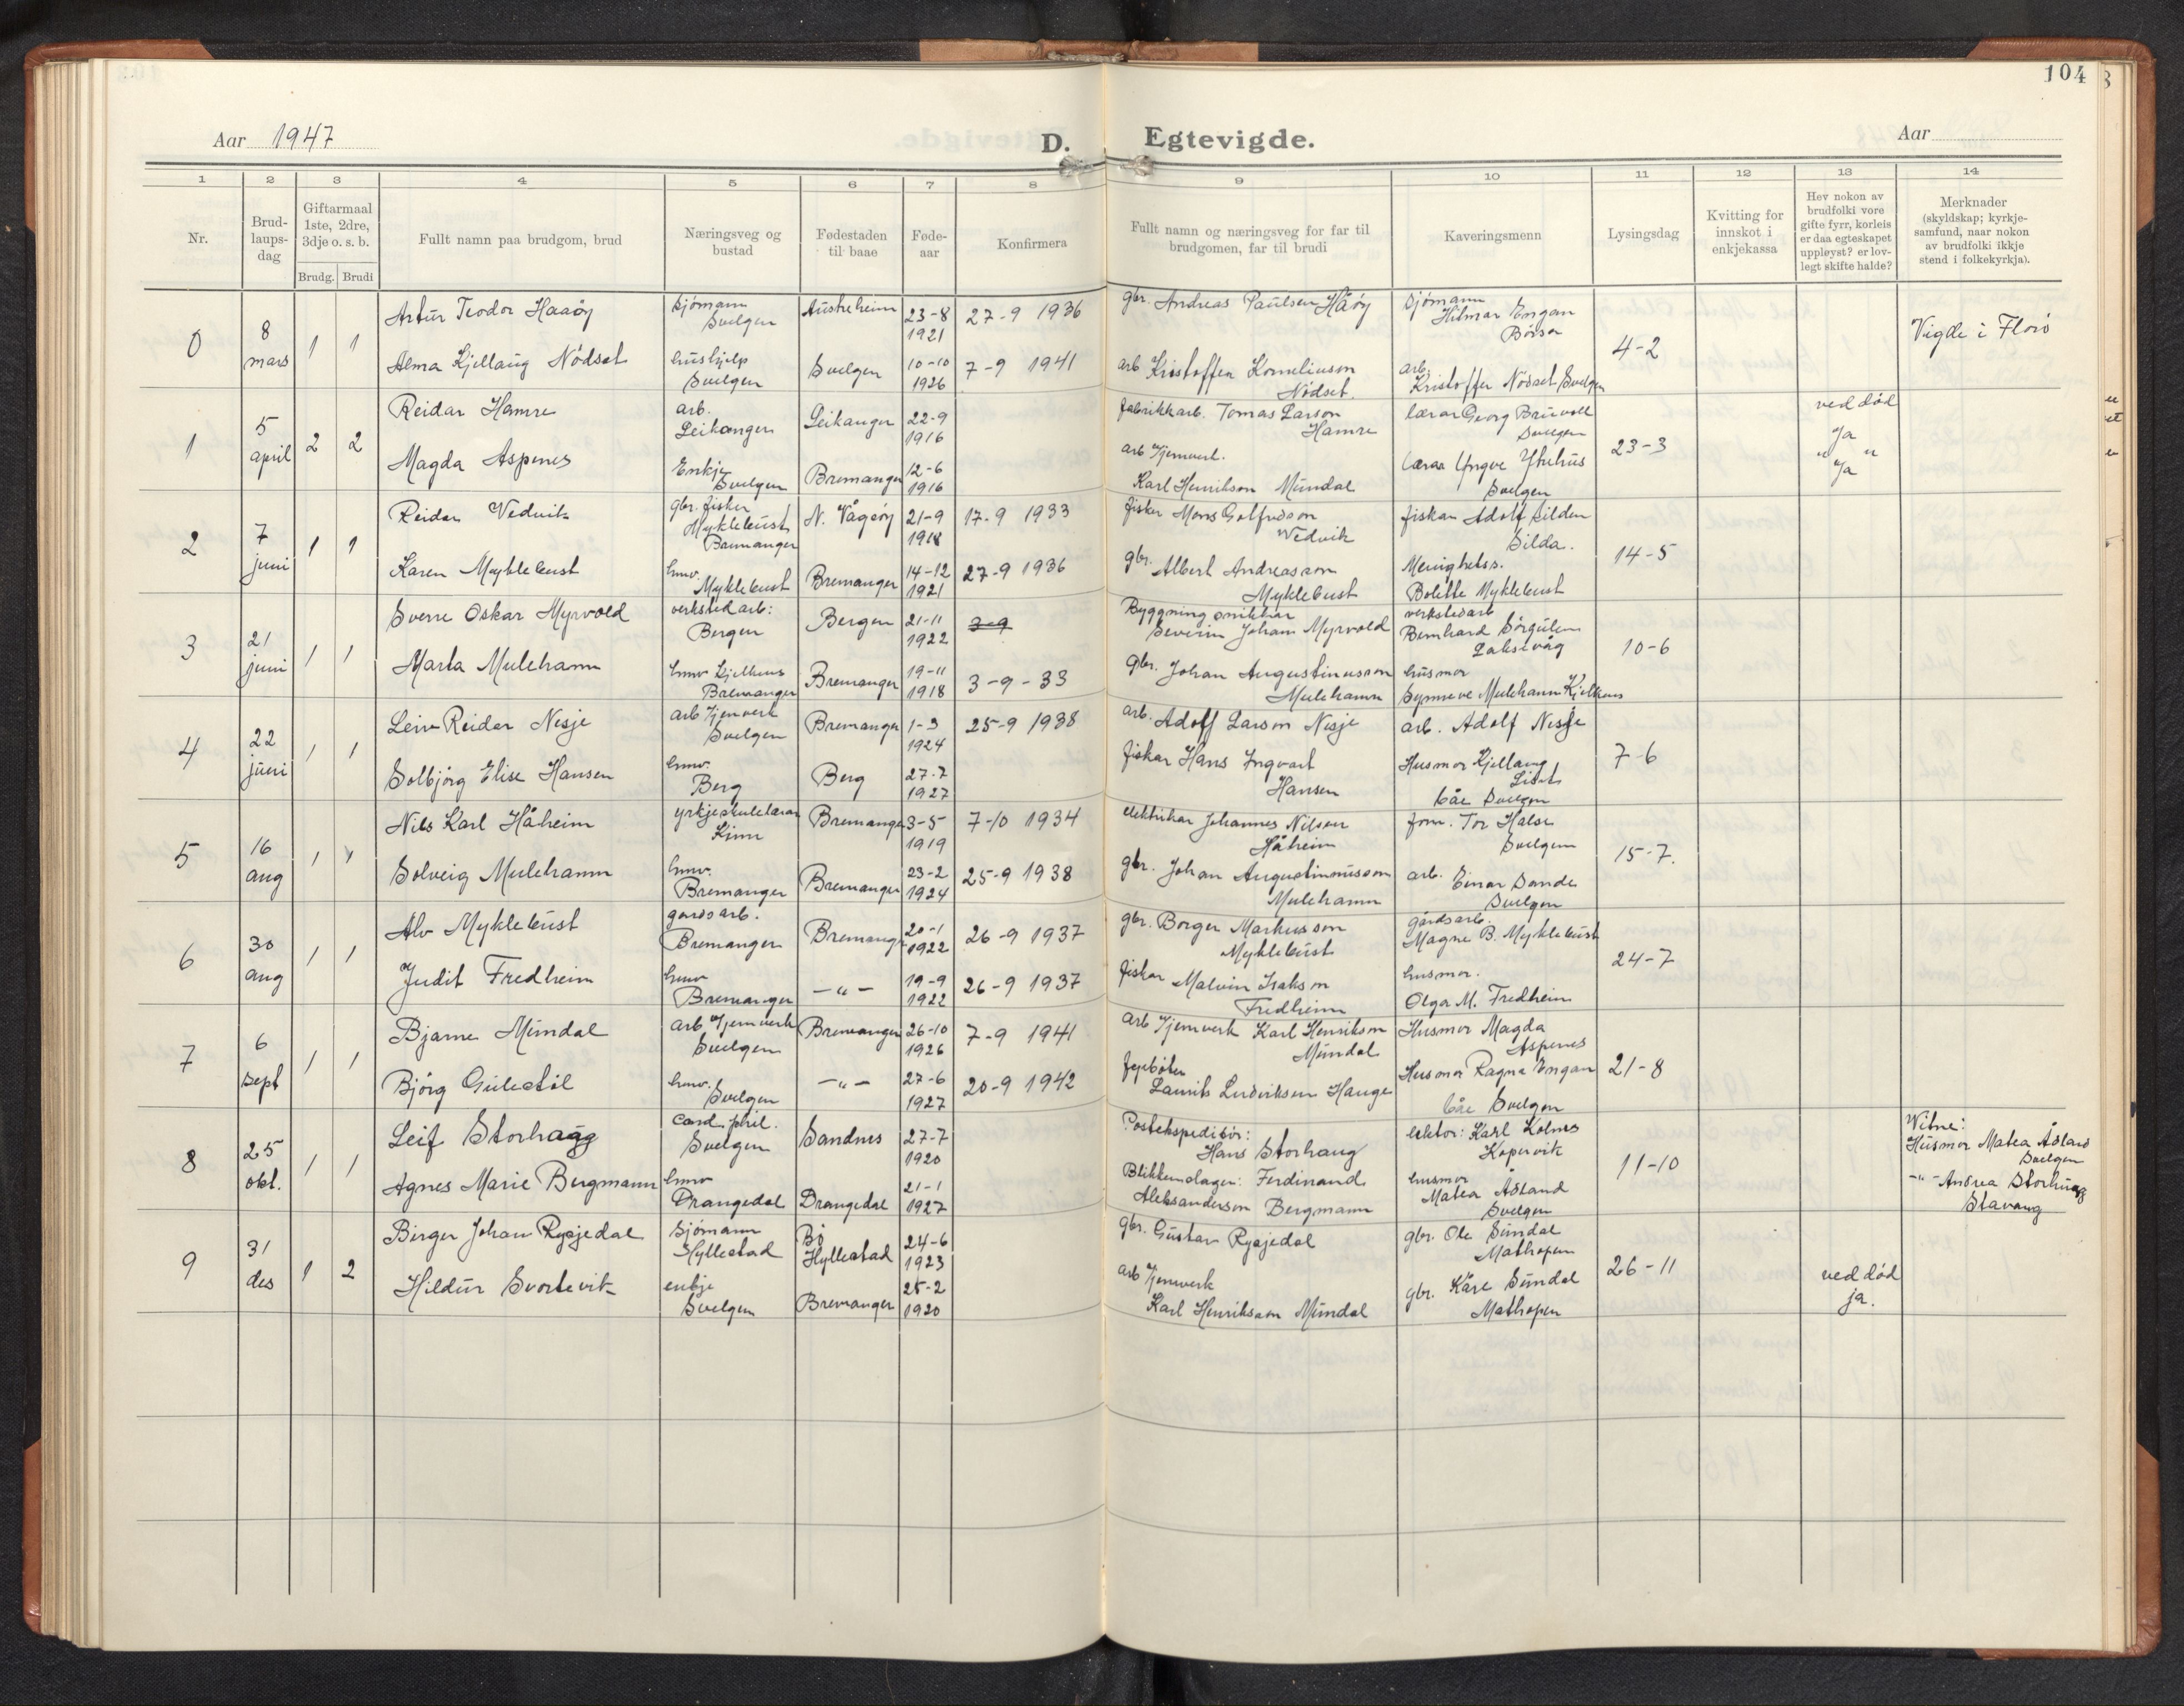 104
Aar 1947
D. Egtevigde.
Aar
1 2 3 4 5 6 7 8 9 10 11 12 13 14
Nr.
Brud-
laups-
dag
Giftarmaal
1ste, 2dre,
3dje o. s. b.
Brudg. Brudi
Fullt namn paa brudgom, brud
Næringsveg og
bustad
Fødestaden
til baae
Føde-
aar
Konfirmera
Fullt namn og næringsveg for far til
brudgomen, far til brudi
Kaveringsmenn
Lysingsdag
Kvitting for
innskot i
enkjekassa
Hev nokon av
brudfolki vore
gifte fyrr, korleis
er daa egteskapet
uppløyst? er lov-
legt skifte halde?
Merknader
(skyldskap; kyrkje-
samfund, naar nokon
av brudfolki ikkje
stend i folkekyrkja).
0
8
mars
1 1
Artur Teodor Haaöy
Sjömann
Svelgen
Austrheim
23-8
1921
27-9 1936
gbr. Andreas Paulsen Håöy
Sjömann
Hilmar Engan
Börsa
4-2
Vigde i Florö
Alma Kjellaug Nödset
hushjelp
Svelgen
Svelgen
10-10
1926
7-9 1941
arb Kristoffer Korneliusson
Nödset.
arb.
Kristoffer Nödset Svelgen
1
5
april
2 2
Reidar Hamre
arb.
Leikanger
Leikanger
22-9
1916
fabrikkarb. Tomas Larson
Hamre
lærar Georg Bruvoll
Svelgen
23-3
ved död
Ja
Magda Aspenes
Enkje
Svelgen
Bremanger
12-6
1916
arb Jernverk.
Karl Henrikson Mundal
lærar Yngve Ytrehus
Svelgen
" "
Ja
2
7
juni
1 1
Reidar Vedvik
gbr. fisker
Myklebust
Bremanger
N. Vågsöy
21-9
1918
17-9 1933
fisker Mons Gotfredson
Vedvik
fiskar Adolf Silden
Silda.
14-5
Karen Myklebust
hmv.
Myklebust
Bremanger
14-12
1921
27-9 1936
gbr. Albert Andreasson
Myklebust
Menighetss.
Bolette Myklebust
3
21
juni
1 1
Sverre Oskar Myrvold
verksted arb:
Bergen
Bergen
21-11
1922
3-9
Byggningsnikkar
Severin Johan Myrvold
verkstedarb
Bernhard Sörgulen
Laksevåg
10-6
Marta Mulehamn
hmv Kjelkenes
Bremanger
Bremanger
19-11
1918
3-9-33
gbr. Johan Augustinusson
Mulehamn
husmor
Synneve Mulehamn Kjelkenes
4
22
juni
1 1
Leiv Reidar Nesje
arb Jernverk
Svelgen
Bremanger
1-3
1924
25-9 1938
arb. Adolf Larson Nesje
arb. Adolf Nesje
7-6
Solbjörg Elise Hansen
hmv.
Berg
Berg
27-7
1927
fiskar Hans Ingvart
Hansen
Husmor Kjellaug
Liset
båe Svelgen
5
16
aug
1 1
Nils Karl Håheim
yrkjeskulelærar
Kinn
Bremanger
3-5
1919
7-10 1934
elektrikar Johannes Nilsen
Håheim
form. Tor Halse
Svelgen
15-7.
Solveig Mulehamn
hmv.
Bremanger
Bremanger
23-2
1924
25-9 1938
gbr. Johan Augustinusson
Mulehamn
arb. Einar Sande
Svelgen
6
30
aug
1 1
Alv Myklebust
gardsarb.
Bremanger
Bremanger
20-1
1922
26-9 1937
gbr. Borger Markusson
Myklebust
gårdsarb.
Magne B. Myklebust
24-7
Judit Fredheim
hmv
Bremanger
-"-
19-9
1922
26-9 1937
fiskar Malvin Isakson
Fredheim
husmor.
Olga M. Fredheim
7
6
sept
1 1
Bjarne Mundal
arb Jernverk
Svelgen
Bremanger
26-10
1926
7-9 1941
arb Jernverk Karl Henrikson
Mundal
Husmor Magda
Aspenes
21-8
Björg Gulestöl
hmv.
Svelgen
-"-
27-6
1927
20-9 1942
Laurits Ludviksen Hauge
Husmor Ragna Engan
båe Svelgen
8
25
okt.
1 1
Leif Storhaug
cand. phil.
Svelgen
Sandnes
27-7
1920
Postekspeditör:
Hans Storhaug
lektor: Karl Kolnes
Kopervik
11-10
Vitne:
Husmor Matea Åsland
Svelgen
-"- Andrea Storhaug
Stavang
Agnes Marie Bergmann
hmv
Drangedal
Drangedal
21-1
1927
Blikkenslager: Ferdinand
Aleksanderson Bergmann
husmor
Matea Åsland
Svelgen
9
31
des
1 2
Birger Johan Rysjedal
Sjömann
Hyllestad
Bö
Hyllestad
24-6
1923
gbr. Gustav Rysjedal
gbr. Ole Sundal
Mathopen
26-11
ved död
ja.
Hildur Svortevik
enkje
Svelgen
Bremanger
25-2
1920
arb Jernverk
Karl Henrikson Mundal
gbr. Kåre Sundal
Mathopen